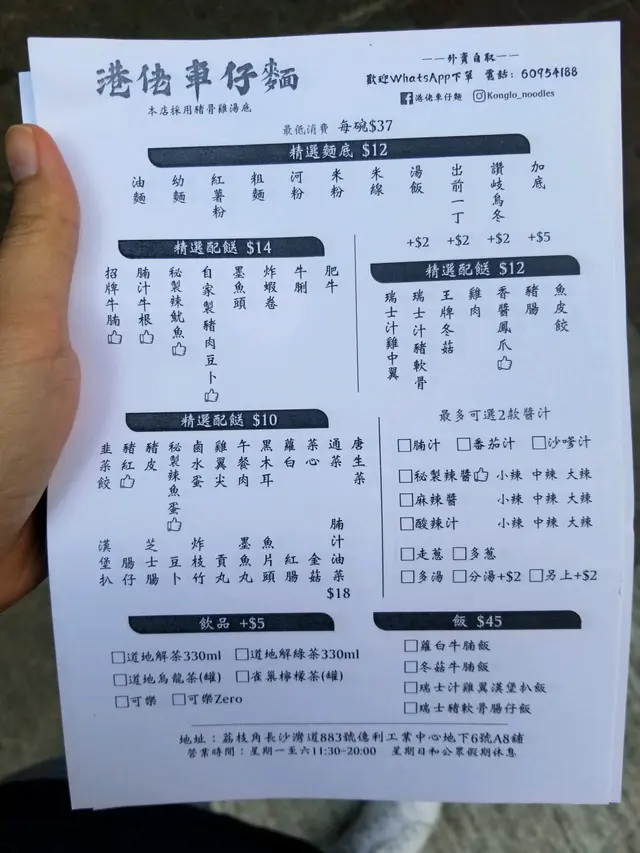 港佬車仔麵
本店採用豬骨雞湯底
——外賣自取——
歡迎WhatsApp下單 電話: 60954188
港佬車仔麵 Konglo_noodles
最低消費 每碗$37
精選麵底 $12
油麵
幼麵
紅薯粉
粗麵
河粉
米粉
米線
湯飯 +$2
出前一丁 +$2
讚岐烏冬 +$2
加底 +$5
精選配餸 $14
招牌牛腩
腩汁牛根
秘製辣魷魚
自家製豬肉豆卜
墨魚頭
炸蝦卷
牛脷
肥牛
精選配餸 $12
瑞士汁雞中翼
瑞士汁豬軟骨
王牌冬菇
雞肉
香醬鳳爪
豬腸
魚皮餃
精選配餸 $10
韭菜餃
豬紅
豬皮
秘製辣魚蛋
鹵水蛋
雞翼尖
午餐肉
黑木耳
蘿白
菜心
通菜
唐生菜
漢堡扒
腸仔
芝士腸
豆卜
炸枝竹
貢丸
墨魚丸
魚片頭
紅腸
金菇
腩汁油菜 $18
最多可選2款醬汁
腩汁 番茄汁 沙嗲汁
秘製辣醬 小辣 中辣 大辣
麻辣醬 小辣 中辣 大辣
酸辣汁 小辣 中辣 大辣
走蔥 多蔥
多湯 分湯+$2 另上+$2
飲品 +$5
道地解茶330ml 道地解綠茶330ml
道地烏龍茶(罐) 雀巢檸檬茶(罐)
可樂 可樂Zero
飯 $45
蘿白牛腩飯
冬菇牛腩飯
瑞士汁雞翼漢堡扒飯
瑞士豬軟骨腸仔飯
地址：荔枝角長沙灣道883號億利工業中心地下6號A8鋪
營業時間：星期一至六11:30-20:00 星期日和公眾假期休息